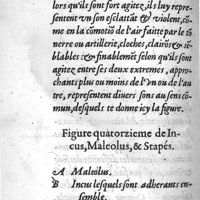 lors qu'ils sont fort agitez, ils luy repre-
sentent vn son esclattāt & violent, cō-
me en la cōmotiō de l'air faitte par le tō
nerre ou artillerie, cloches, clairōs & sē
blables: & finablemēt selon qu'ils sont
agitez entre ses deux extremes, appro-
chants plus ou moins de l'vn ou de l'au
tre, representent diuers sons au sens cō-
mun, desquels te donne icy la figure.
Figure quatorzieme de In-
cus, Maleolus, & Stapés.
A Maleolus.
B Incus lesquels sont adherants en-
semble.